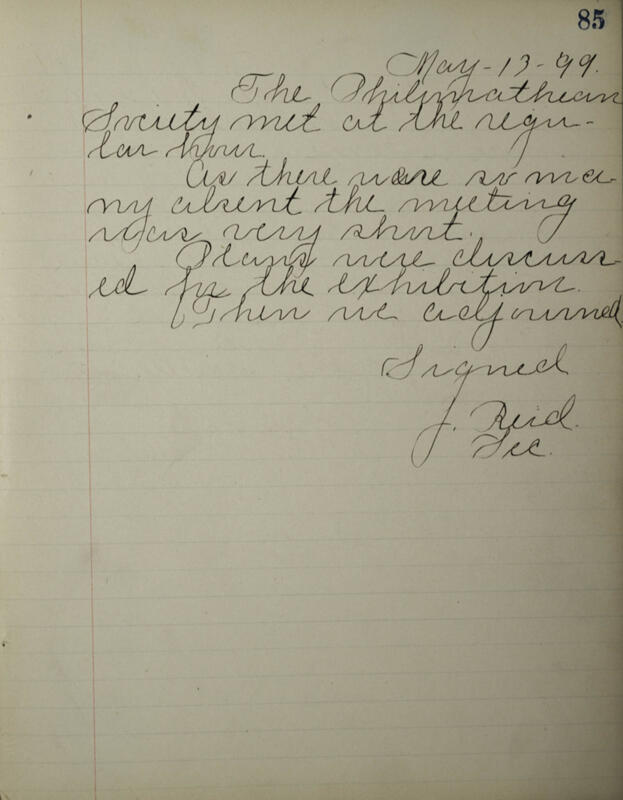 85
May-13-'99.
The Philomathean
Society met at the regu-
lar hour.
As there were so ma-
ny absent the meeting
was very short.
Plans were discuss-
ed for the exhibition.
Then we adjourned
Signed
J. Reid.
Sec.